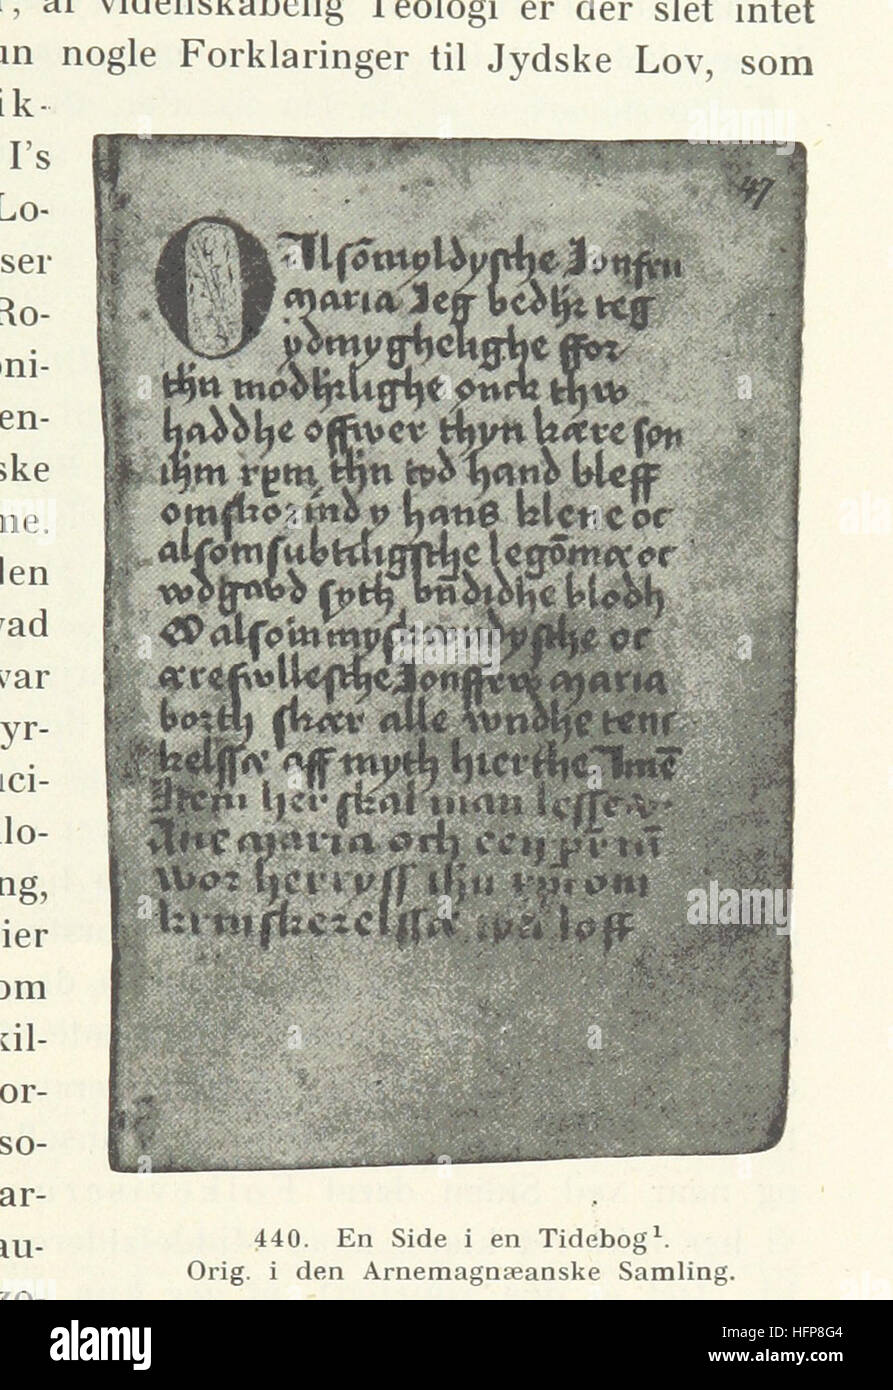 , af videnskabelig Teologi er der slet intet
un nogle Forklaringer til Jydske Lov, som
ik-
I's
Lo-
ser
Ro-
oni-
en-
ske
me.
den
vad
var
yr-
uci-
llo-
ng,
ier
om
kil-
or-
so-
ar-
au-
zo-
47
O Alsōmyldysthe Jonfru
maria Jeg bedhr teg
ydmyghelighe ffor
thn modhrlighe ōnck thw
haddhe offwer thyn kære søn
ihm xpm thn tyd hand bleff
omskorind y hans klene oc
alsomsubtiligsthe legōmæ oc
wdgavd syth bn̄didhe blodh
O alsom
æresfwllesthe Jonffrw maria
borth skær alle wndhe tenc
kelssæ aff myth hierthe Amē
Item her skal man lesse
Aue maria och een pr̄ nr̄
wor herryss ihu xpi om
440. En Side i en Tidebog¹.
Orig. i den Arnemagnæanske Samling.
alamy
a
alamy
Image ID: HFP8G4
www.alamy.com